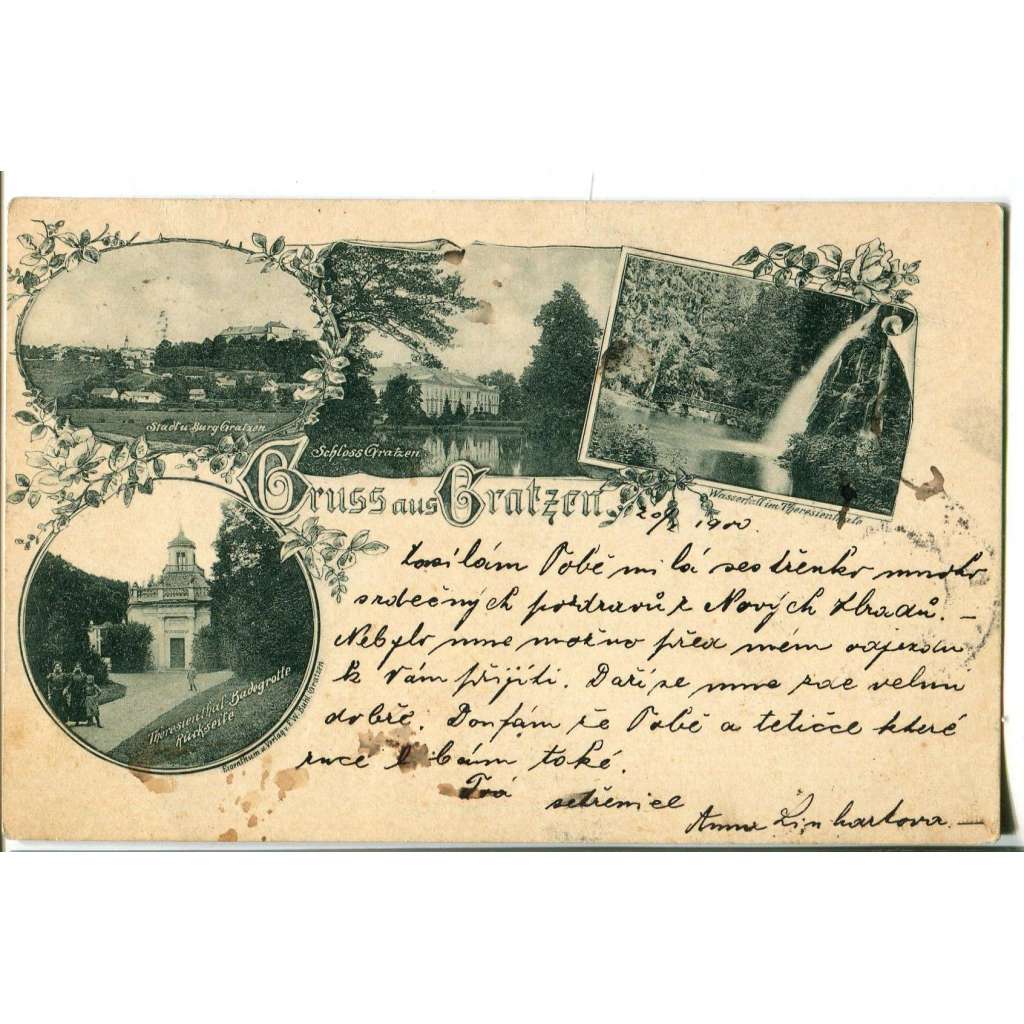 Stadt u. Burg Gratzen
Schloss Gratzen
Wasserfall im Theresienthale
Gruss aus Gratzen.
Theresienthal-Badegrotte
Rückseite
Eigenthum u. Verlag v. W. Gratzen
1900
Zasílám Tobě milá sestřenko mnoho
srdečných pozdravů z Nových Hradů. –
Nebylo mne možno před mém odjezdu
k Vám přijíti. Daří se mne zde velmi
dobře. Doufám že Tobě a tetičce které
ruce líbám také.
Tvá
Anna Linhartova. –